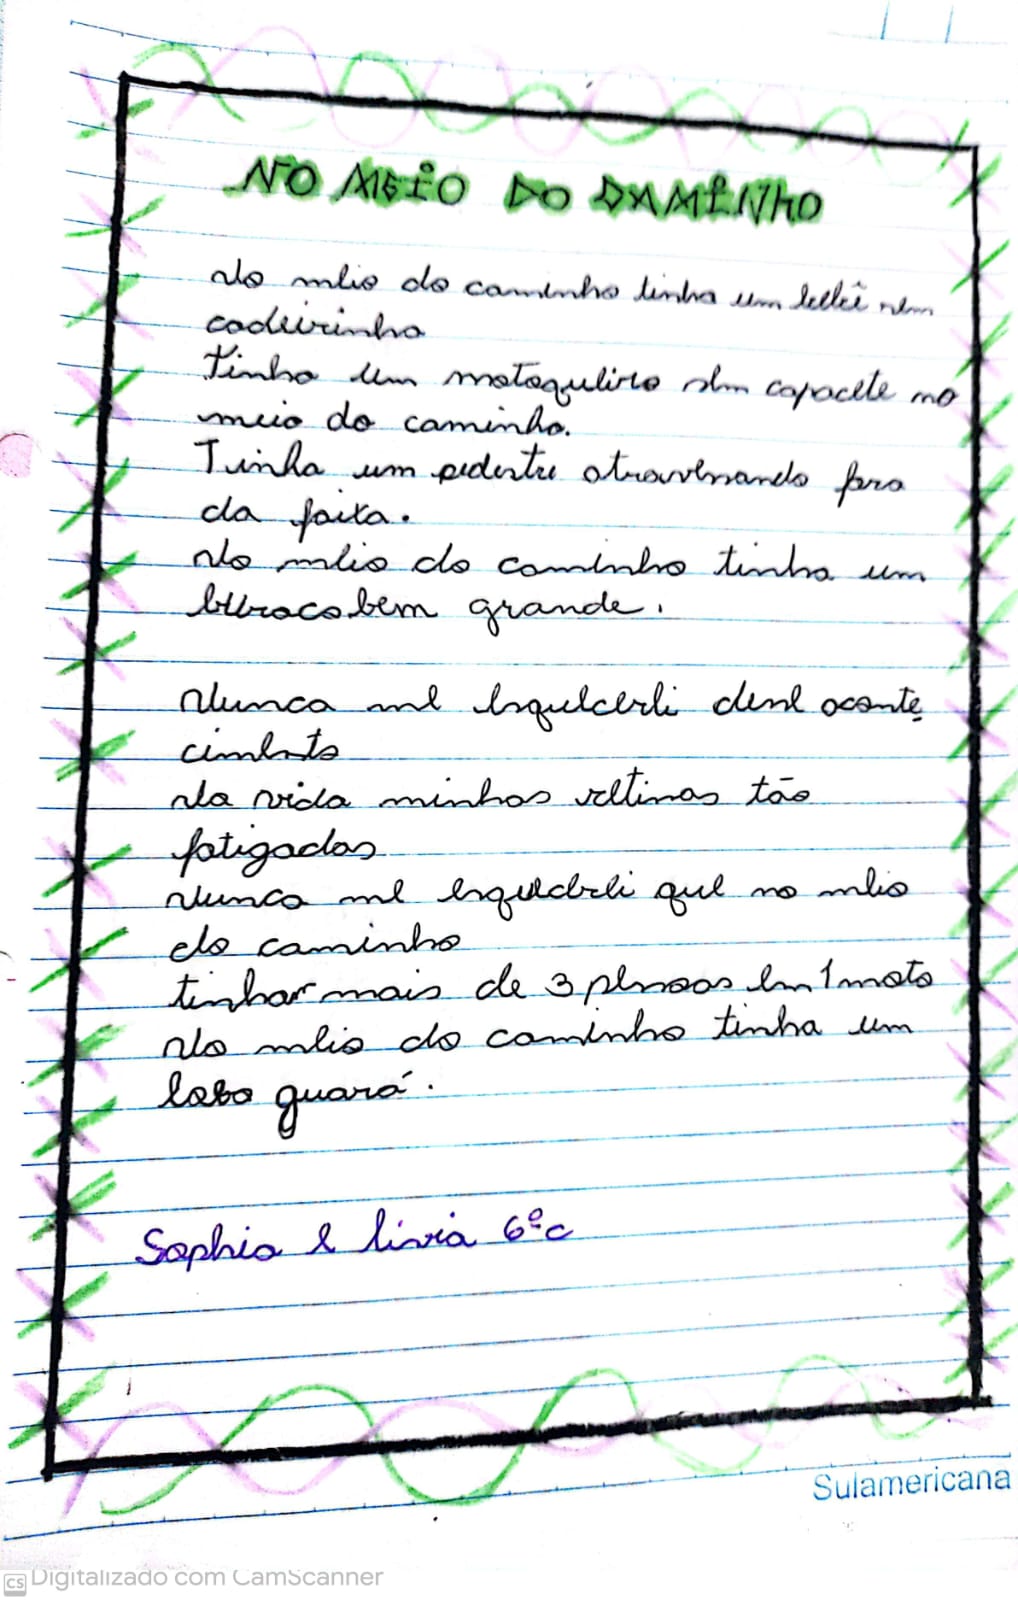 NO MEIO DO CAMINHO
No meio do caminho tinha um bebê sem
cadeirinha
Tinha um motoqueiro sem capacete no
meio do caminho.
Tinha um pedestre atravessando fora
da faixa.
No meio do caminho tinha um
buraco bem grande.
Nunca me esquecerei desse aconte
cimento
Na vida minhas retinas tão
fatigadas
Nunca me esquecerei que no meio
do caminho
tinham mais de 3 pessoas em 1 moto
No meio do caminho tinha um
lobo guará.
Sophia e Livia 6º c
Sulamericana
CS Digitalizado com CamScanner